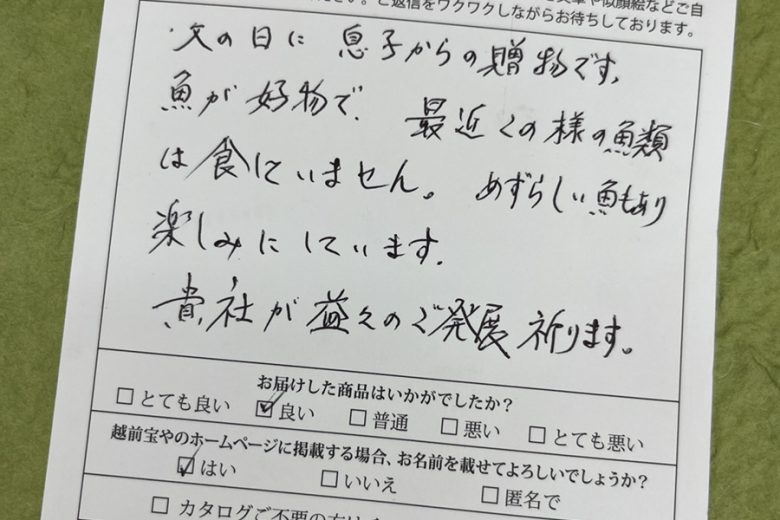 ご返信をワクワクしながらお待ちしております。
父の日に 息子からの贈物です。
魚が好物で、 最近この様の魚類
は食していません。 めずらしい魚もあり
楽しみにしています。
貴社が益々のご発展祈ります。
お届けした商品はいかがでしたか?
☐とても良い ☑良い ☐普通 ☐悪い ☐とても悪い
越前宝やのホームページに掲載する場合、お名前を載せてよろしいでしょうか?
☑はい ☐いいえ ☐匿名で
☐カタログご不要の方は